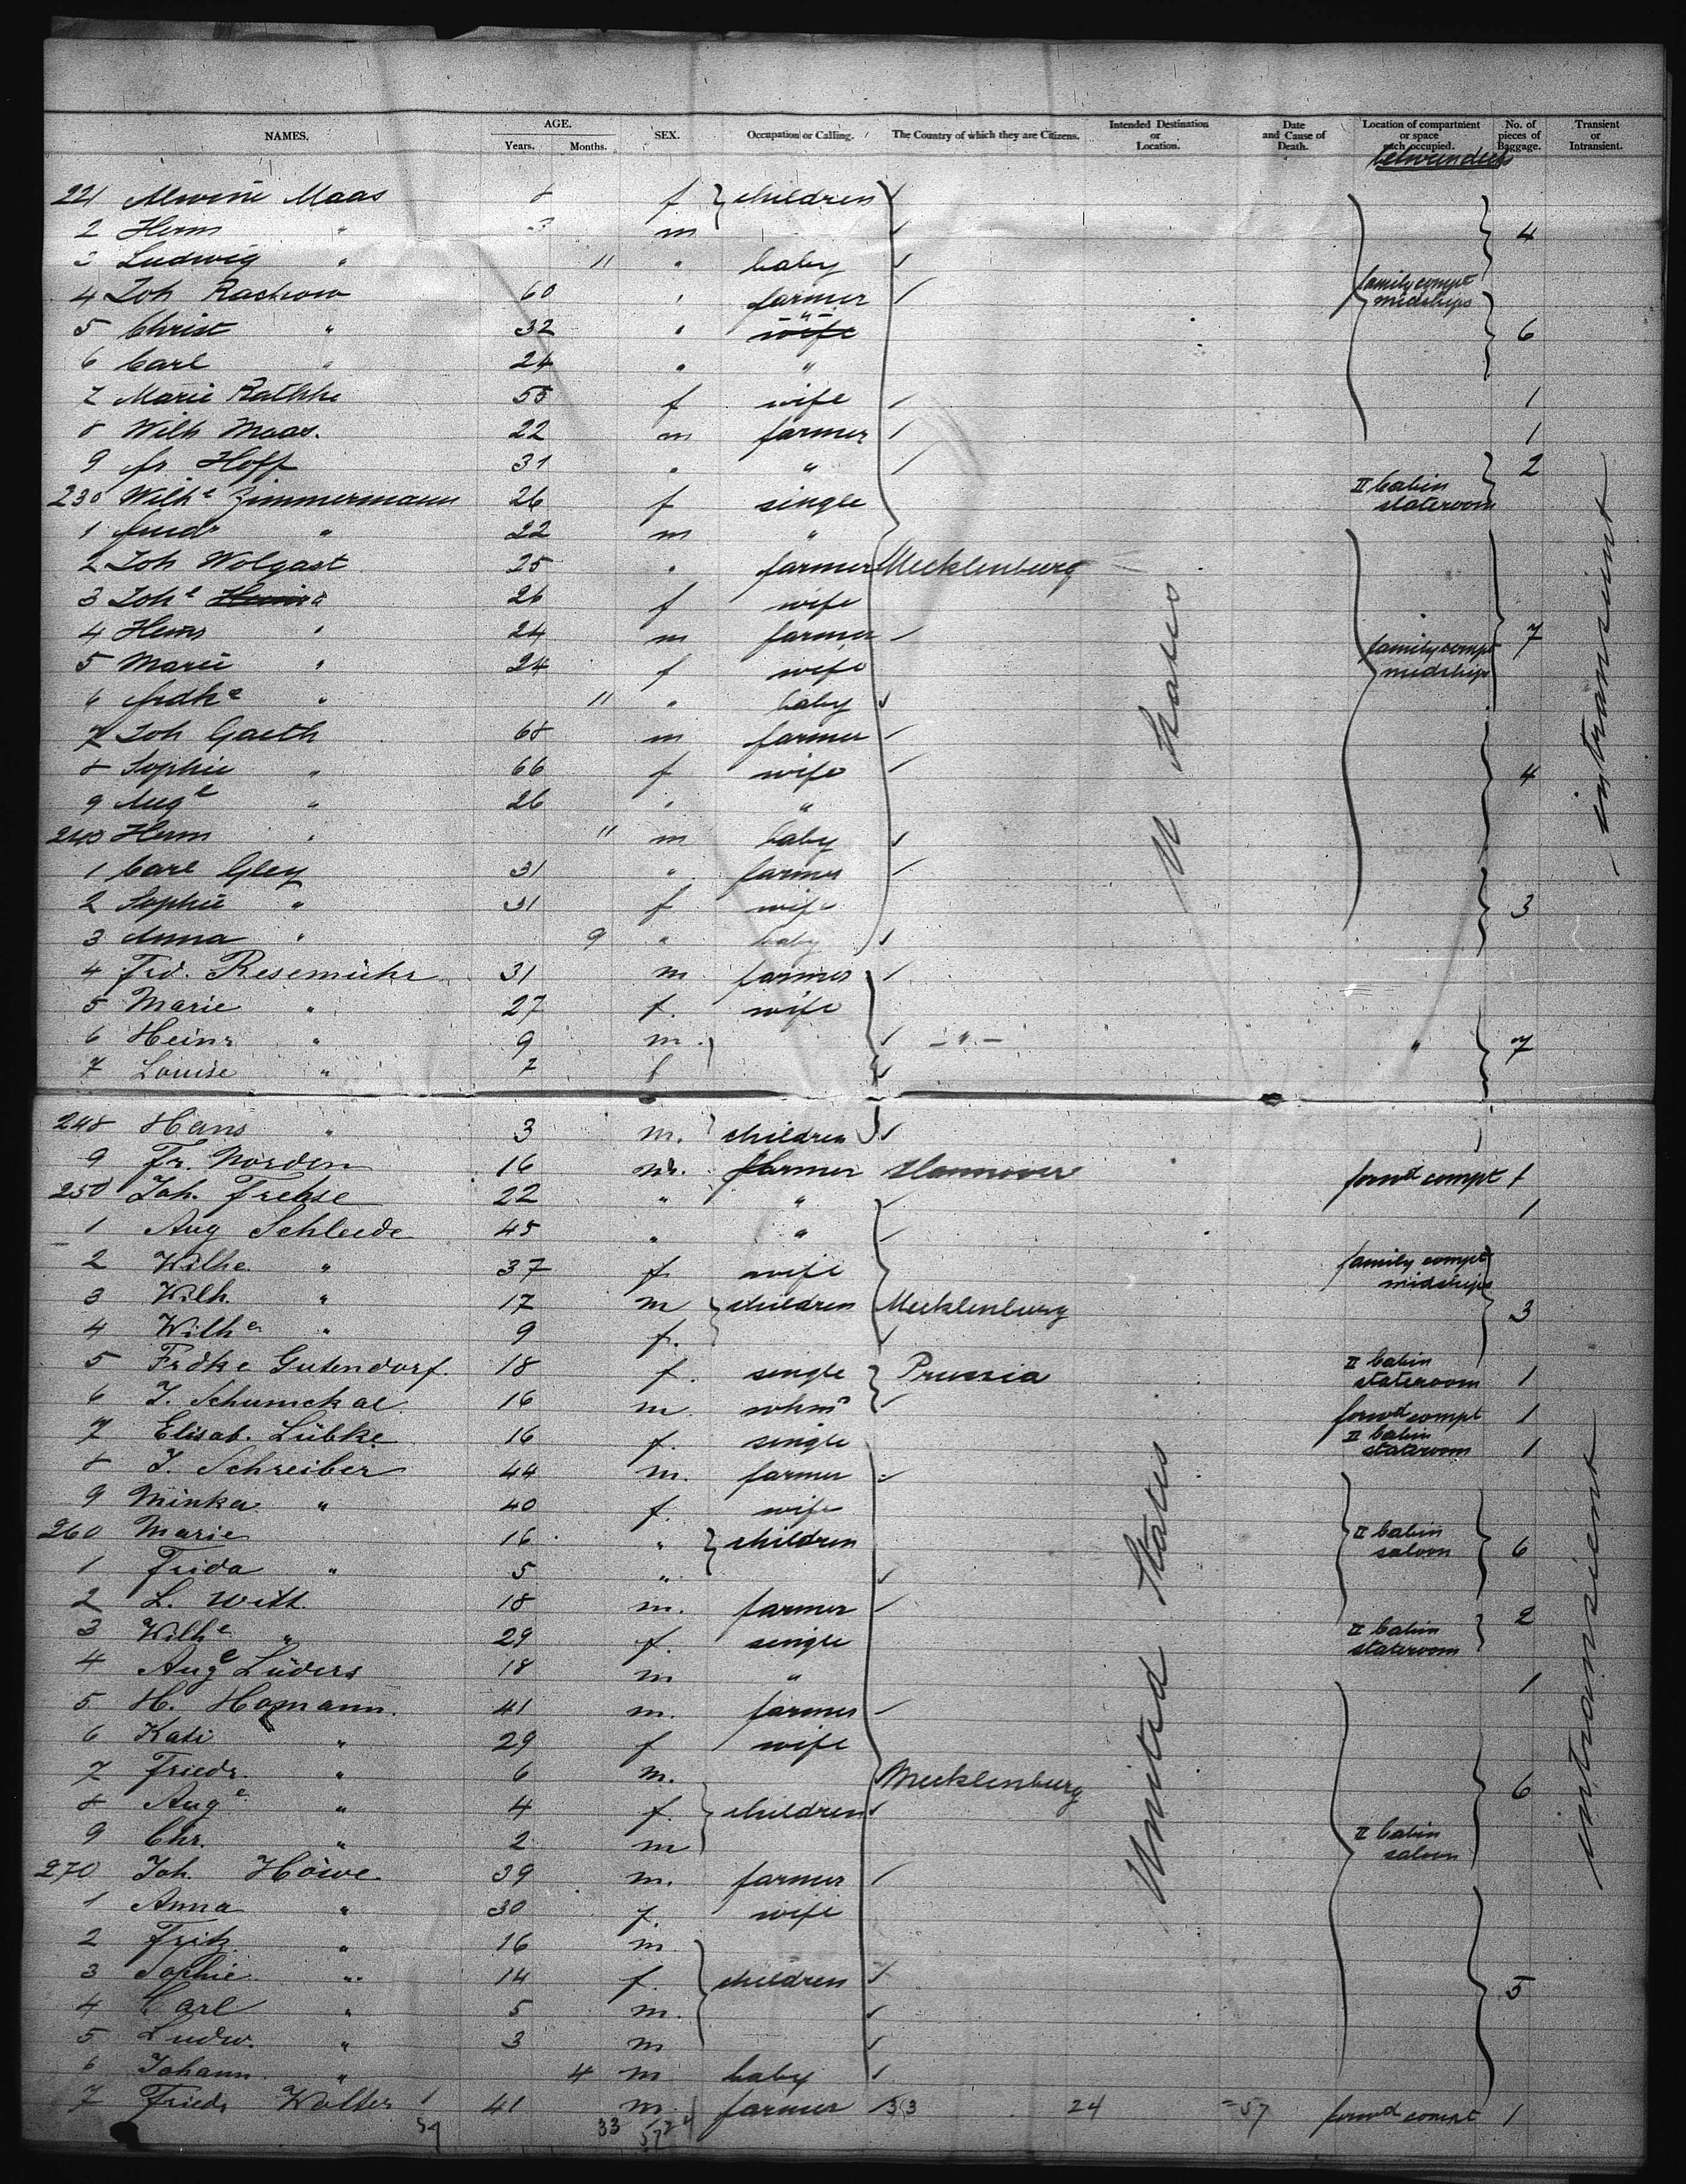 NAMES. AGE. Years. Months. SEX. Occupation or Calling. The Country of which they are Citizens. Intended Destination or Location. Date and Cause of Death. Location of compartment or space each occupied. No. of pieces of Baggage. Transient or Intransient.
betweendecks
221 Alwine Maas 8 f children
2 Herm " 3 m 4
3 Ludwig " 11 " baby
4 Joh Rachow 60 " farmer family compt midships
5 Christ " 32 " wife " 6
6 Carl " 24 " "
7 Marie Rathke 55 f wife 1
8 Wilh Maas. 22 m farmer 1
9 fr Hoff 31 " " 2
230 Wilhe Zimmermann 26 f single II Cabin stateroom
1 " 22 m "
2 Joh Wolgast 25 " farmer Mecklenburg
3 Johe " 26 f wife
4 " 24 m farmer 7
5 Marie " 24 f wife family compt midships
6 frdke " 11 " baby
7 Joh Gaeth 68 m farmer
8 Sophie " 66 f wife 4
9 Auge " 26 " "
240 Herm " 11 m baby
1 Carl Gley 31 " farmer
2 Sophie " 31 f wife 3
3 Anna " 9 " baby
U States intransient
4 Frd. Resemühr 31 m farmer
5 Marie " 27 f. wife
6 Heinr " 9 m. - " - " 7
7 Louise " 7 f
248 Hans " 3 m. children
9 Fr. Norden 16 m. farmer Hannover forwd compt 1
250 Joh. Frehse 22 " " 1
1 Aug Schleede 45 " "
2 Wilhe. " 37 f. wife family compt midships
3 Wilh. " 17 m children Mecklenburg 3
4 Wilhe " 9 f.
5 Frdke Gutendorf. 18 f. single Prussia II Cabin stateroom 1
6 J. 16 m. forwd compt 1
7 Elisab. Lübke 16 f. single II Cabin stateroom 1
8 J. Schreiber 44 m. farmer
9 Minka " 40 f. wife
260 Marie 16 " children II Cabin saloon 6
1 Frida " 5 "
2 L. Witt. 18 m. farmer 2
3 Wilhe " 29 f. single II Cabin stateroom
4 Auge Lüders 18 m " 1
5 H. Hamann. 41 m. farmer
6 Kati " 29 f wife
7 Friedr. " 6 m. Mecklenburg
8 Auge " 4 f. children 6
9 Chr. " 2 m II Cabin saloon
270 Joh. Höwe. 39 m. farmer
1 Anna " 30 f. wife
2 Fritz " 16 m
3 Sophie " 14 f. children
4 Carl " 5 m. 5
5 Ludw. " 3 m
6 Johann " 4 m baby
7 Friedr Wolter 41 m. farmer 33 24 =57 forwd compt 1
United States intransient
33 57